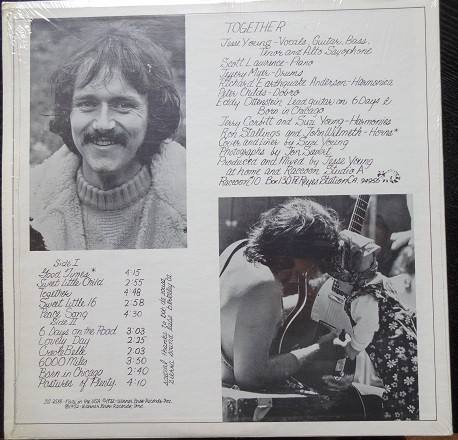 TOGETHER
Jesse Young - Vocals, Guitar, Bass,
Tenor and Alto Saxophone
Scott Lawrence - Piano
Jeffery Myer - Drums
Richard Earthquake Anderson - Harmonica
Peter Childs - Dobro
Eddy Ottenstein Lead guitar on 6 Days &
Born in Chicago
Jerry Corbitt and Suzi Young - Harmonies
Ron Stallings and John Wilmeth - Horns*
Cover and Liner by Suzi Young
Photographs by
Produced and Mixed by Jesse Young
at home and Raccoon Studio A
Raccoon #10 Box 130 Pt. Reyes Station CA. 94956
Side I
Good Times* 4:15
Sweet Little Child 2:55
Together 4:48
Sweet Little 16 2:58
Peace Song 4:30
Side II
6 Days on the Road 3:03
Lovely Day 2:25
Creole Belle 2:03
6000 Miles 3:50
Born in Chicago 2:40
Pastures of Plenty 4:10
special thanks to
BS 2588 - Made in the USA ©1972 - Warner Bros. Records, Inc.
℗1972 - Warner Bros. Records, Inc.